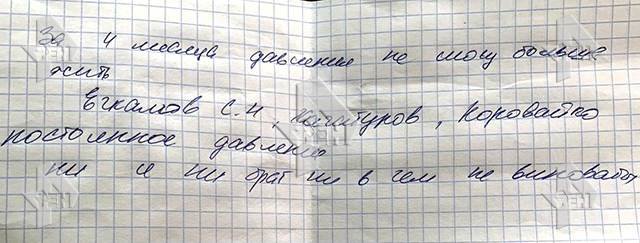 За 4 месяца давления не могу больше
жить
С.Н, Хачатуров, Коровайко
постоянное давление
ни я ни брат ни в чем не виноваты
РЕН